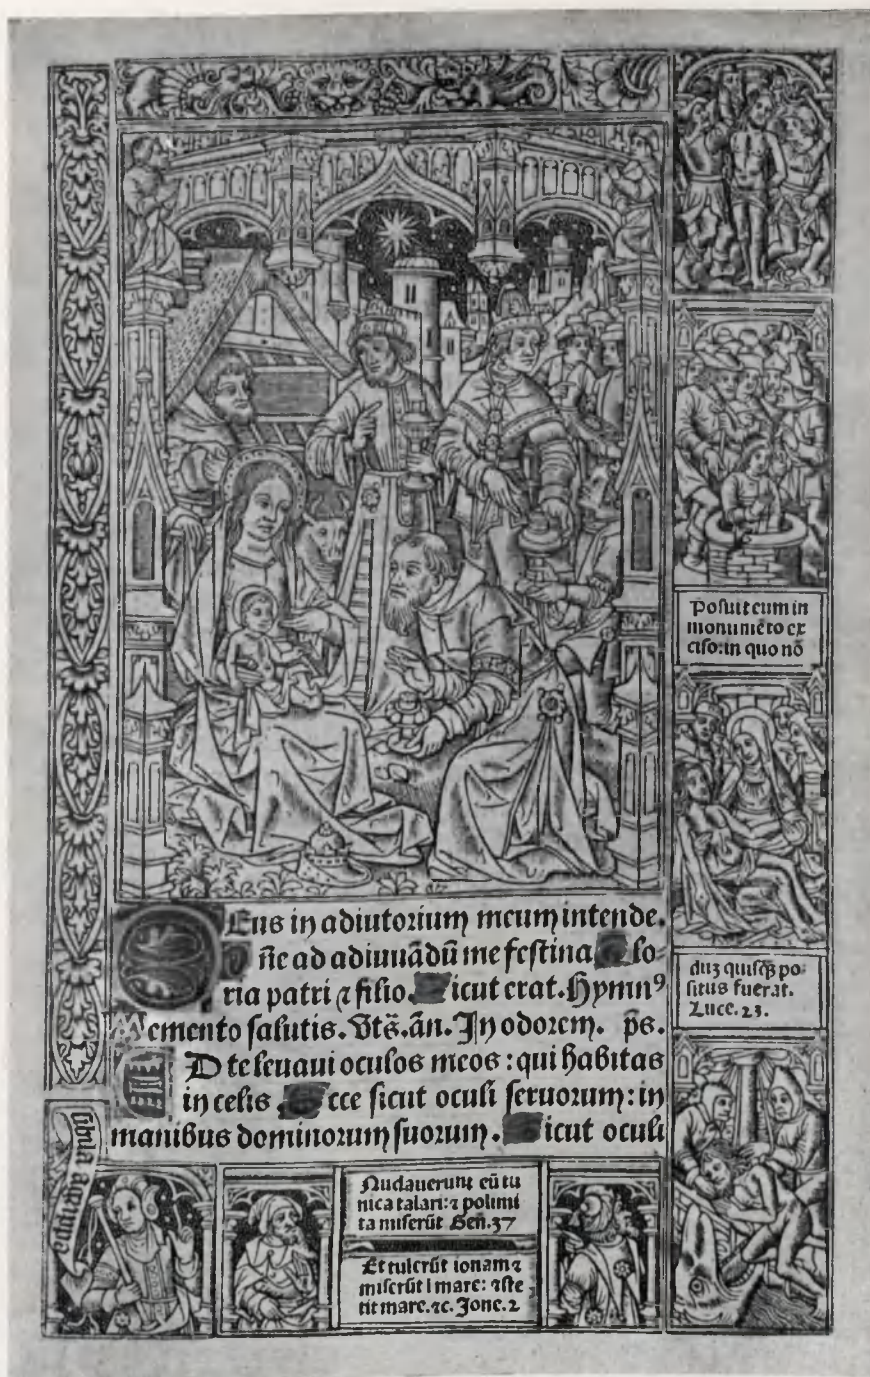 Deus in adiutorium meum intende.
Dñe ad adiuuãdũ me festina Glo-
ria patri ⁊ filio. Sicut erat. Hymnꝰ
Memento salutis. Vts̃. añ. In odorem. p̃s.
AD te leuaui oculos meos: qui habitas
in celis. Ecce sicut oculi seruorum: in
manibus dominorum suorum. Sicut oculi
Posuit eum in
monumẽto ex
ciso: in quo nõ
duȝ quisq̃ꝫ po-
situs fuerat.
Luce. 23.
Nudauerunt eũ tu
nica talari: ⁊ polimi
ta miserũt Gen̄. 37
Et tulerũt ionam ⁊
miserũt ĩ mare: ⁊ ste
tit mare. ⁊c. Jone. 2